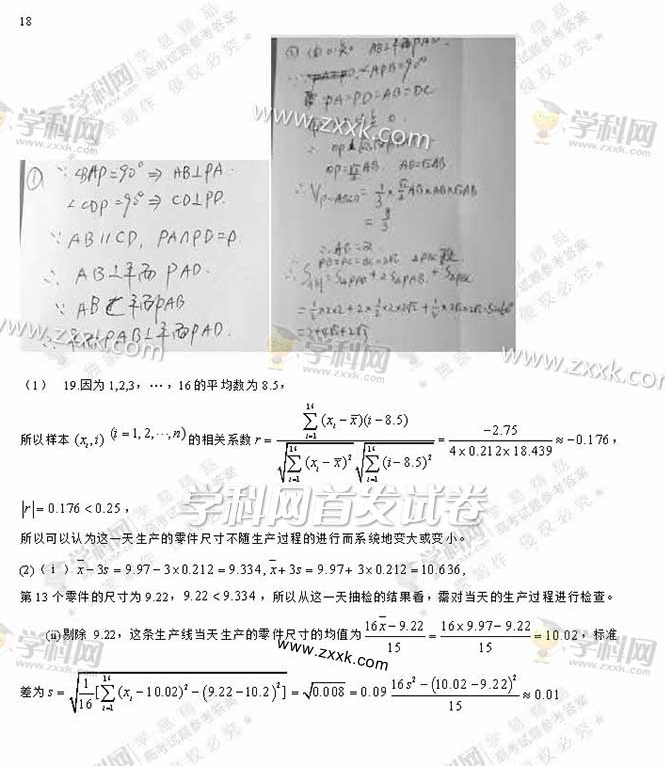 18
① ∵ ∠BAP=90° ⇒ AB⊥PA.
∠CDP=90° ⇒ CD⊥PD.
∵ AB∥CD, PA∩PD=P.
∴ AB⊥平面 PAD.
∵ AB⊂平面PAB
∴ 平面PAB⊥平面PAD.
AB⊥平面PAD.
∠APD=90°
PA=PD=AB=DC
AD=√2AB
= 8/3
∴ AB=2
=2+4√2+2√3
(1) 19.因为 1,2,3,⋯,16 的平均数为 8.5,
所以样本 (x_i, i) (i=1,2,⋯,n) 的相关系数 r = ∑_{i=1}^{16}(x_i−x̄)(i−8.5) / (√(∑_{i=1}^{16}(x_i−x̄)²) √(∑_{i=1}^{16}(i−8.5)²)) = −2.75 / (4×0.212×18.439) ≈ −0.176,
|r| = 0.176 < 0.25,
所以可以认为这一天生产的零件尺寸不随生产过程的进行而系统地变大或变小。
(2) (i) x̄−3s = 9.97−3×0.212 = 9.334, x̄+3s = 9.97+3×0.212 = 10.636,
第 13 个零件的尺寸为 9.22, 9.22 < 9.334, 所以从这一天抽检的结果看,需对当天的生产过程进行检查。
(ii)剔除 9.22,这条生产线当天生产的零件尺寸的均值为 (16x̄−9.22)/15 = (16×9.97−9.22)/15 = 10.02, 标准
差为 s = √(1/16[∑_{i=1}^{16}(x_i−10.02)²−(9.22−10.2)²]) = √0.008 = 0.09 (16s²−(10.02−9.22)²)/15 ≈ 0.01
学科网首发试卷
学科网
www.zxxk.com